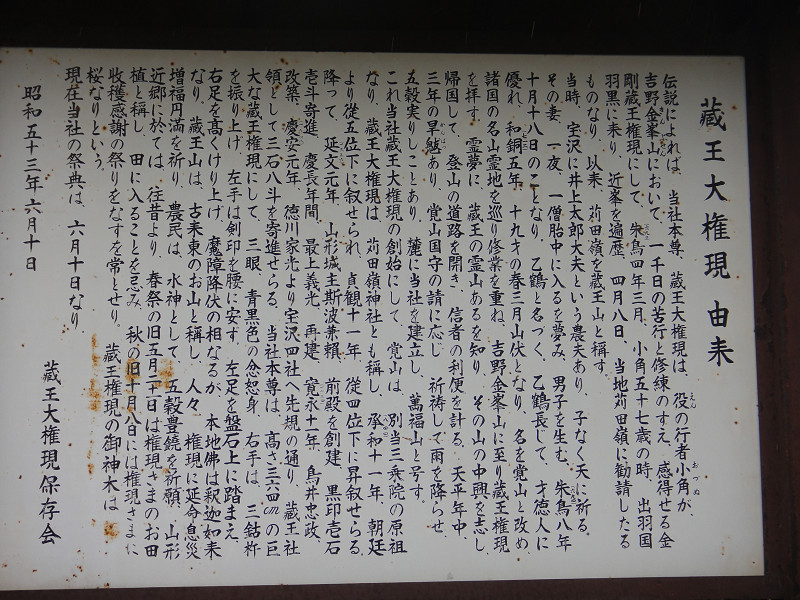 蔵王大権現 由来
伝説によれば、当社本尊、蔵王大権現は、役の行者小角が、
吉野金峯山において、一千日の苦行と修練のすえ、感得せる金
剛蔵王権現にして、朱鳥四年三月、小角五十七歳の時、出羽国
羽黒に来り、近峯を遍歴、四月八日、当地苅田嶺に勧請したる
ものなり、以来、苅田嶺を蔵王山と称す。
当時、宝沢に井上太郎大夫という農夫あり、子なく天に祈る。
その妻、一夜、一僧胎中に入るを夢み、男子を生む。朱鳥八年
十月十八日のことなり、乙鶴と名づく、乙鶴長じて、才徳人に
優れ、和銅五年、十九才の春三月山伏となり、名を覚山と改め、
諸国の名山霊地を巡り修業を重ね、吉野金峯山に至り蔵王権現
を拝す、霊夢に、蔵王の霊山あるを知り、その山の中興を志し
帰国して、登山の道路を開き、信者の利便を計る。天平年中、
三年の旱魃あり、覚山国守の請に応じ、祈祷して雨を降らせ、
五穀実りしことあり、麓に当社を建立し、萬福山と号す。
これ当社蔵王大権現の創始にして、覚山は、別当三乗院の原祖
なり、蔵王大権現は、苅田嶺神社とも称し、承和十一年、朝廷
より従五位下に叙せられ、貞観十一年、従四位下に昇叙せらる、
降って、延文元年、山形城主斯波兼頼、前殿を創建、黒印壱石
壱斗寄進、慶長年間、最上義光、再建、寛永十年、鳥井忠政、
改築、慶安元年、徳川家光より宝沢四社へ先規の通り、蔵王社
領として三石八斗を寄進せらる。当社本尊は、高さ三六四cmの巨
大な蔵王権現にして、三眼、青黒色の忿怒身、右手は、三鈷杵
を振り上げ、左手は剣印を腰に安す、左足を盤石上に踏まえ、
右足を高くけり上げ、魔障降伏の相なるが、本地佛は釈迦如来
なり、蔵王山は、古来東のお山と称し、人々、権現に延命息災
増福円満を祈り、農民は、水神として、五穀豊饒を祈願、山形
近郷に於ては、往昔より、春祭の旧五月二十一日は権現さまのお田
植と称し、田に入ることを忌み、秋の旧十月八日には権現さまに
収穫感謝の祭りをなすを常とせり。蔵王権現の御神木は
桜なりという。
現在当社の祭典は、六月十日なり
昭和五十三年六月十日
蔵王大権現保存会